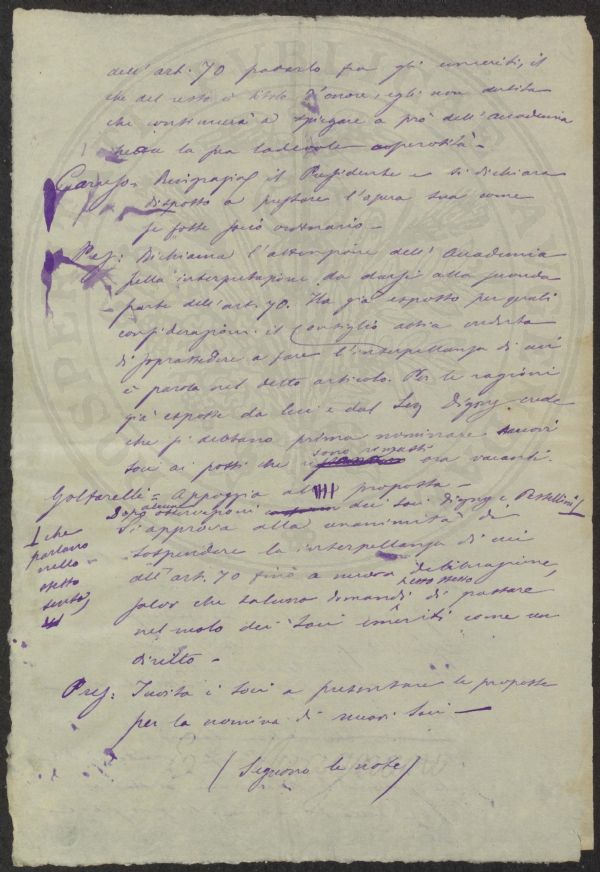 dell'art. 70 passarlo fra gli emeriti, il
che del resto è titolo d'onore, egli non dubita
che continuerà a spiegare a prò dell'Accademia
la sua lodevole operosità -
Caruso - Ringrazia il Presidente e si dichiara
disposto a prestare l'opera sua come
se fosse socio ordinario -
Pres: Richiama l'attenzione dell'Accademia
sulla interpretazione da darsi alla seconda
parte dell'art. 70. Ha già esposto per quali
considerazioni il Consiglio abbia creduto
di soprassedere a fare l'interpellanza di cui
è parola nel detto articolo. Per le ragioni
già esposte da lui e dal Sen Digny crede
che si debbano prima nominare nuovi
soci ai posti che sono rimasti ora vacanti.
Goltarelli = Appoggia la proposta -
Dopo alcune osservazioni dei soci Digny e Pestellini
che
parlano
nello
stesso
senso,
Si approva alla unanimità di
sospendere la interpellanza di cui
all'art. 70 fino a nuova deliberazione,
salvo che taluno domandi di passare,
nel ruolo dei Soci emeriti come un
diritto -
Pres: Invita i Soci a presentare le proposte
per la nomina di nuovi Soci -
(Seguono le note)